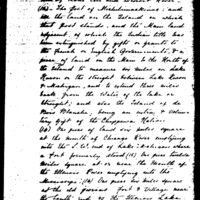 (12) The Post of Michilimackinac, and
all the land on the Island on which
that post stands, and the Main land
adjacent, of which the Indian title has
been extinguished by gifts or grants to
the French or English Governments; & a
piece of land on the Main to the North of
the Island to measure six miles on Lake
Huron or the straight between Lakes Huron
& Michigan, and to extend three miles
back from the water of the lake or
straight; and also the Island of de
Bois Blanche, being an extra & volun-
tary Gift of the Chippewa Nation.
One piece of land six miles square
at the mouth of Chicago River emptying
into the S.W. end of Lake Michigan where
a fort formerly stood. (15) One piece twelve
miles square at or near the mouth of the
Illinois River emptying into the
Mississippi. (16) One piece six miles square
at the old piorias Fort & Village near
the South end of the Illinois Lake